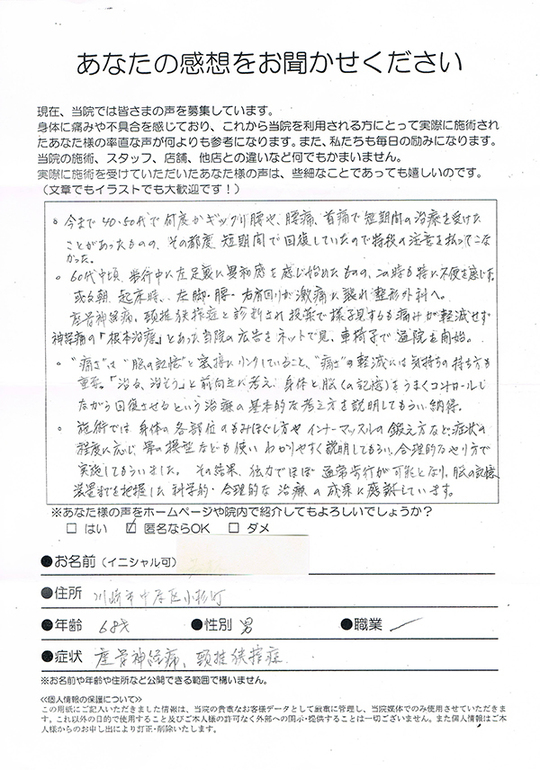 あなたの感想をお聞かせください
現在、当院では皆さまの声を募集しています。
身体に痛みや不具合を感じており、これから当院を利用される方にとって実際に施術され
たあなた様の率直な声が何よりも参考になります。また、私たちも毎日の励みになります。
当院の施術、スタッフ、店舗、他店との違いなど何でもかまいません。
実際に施術を受けていただいたあなた様の声は、些細なことであっても嬉しいのです。
（文章でもイラストでも大歓迎です！）
。今まで40・50代で何度かギックリ腰や、腰痛、首痛で短期間の治療を受けた
ことがあったものの、その都度、短期間で回復していたので特段の注意を払ってこな
かった。
。60代中頃、歩行中に左足裏に異和感を感じ始めたものの、この時も特に不便を感じず。
或る朝、起床時、左脚・腰・右肩回りが激痛に襲れ整形外科へ。
座骨神経痛、頚椎狭搾症と診断され投薬で様子見するも痛みが軽減せず
神経痛の「根本治療」とあった当院の広告をネットで見、車椅子で通院を開始。
。"痛さ"は"脳の記憶"と密接にリンクしていること、"痛さ"の軽減には気持ちの持ち方も
重要。「治る、治そう」と前向きに考え、身体と脳(の記憶)をうまくコントロールし
ながら回復させるという治療の基本的な考え方を説明してもらい納得。
。施術では身体の各部位のもみほぐし方やインナーマッスルの鍛え方など症状の
程度に応じ、骨の模型なども使いわかりやすく説明してもらい、合理的なやり方で
実施してもらいました。その結果、独力でほぼ通常歩行が可能となり、脳の記憶
装置までを把握した科学的・合理的な治療の成果に感謝しています。
※あなた様の声をホームページや院内で紹介してもよろしいでしょうか？
□ はい ☑ 匿名ならOK □ ダメ
●お名前（イニシャル可）
●住所 川崎市中原区小杉町
●年齢 68才 ●性別 男 ●職業
●症状 座骨神経痛、頚椎狭搾症
※お名前や年齢や住所など公開できる範囲で構いません。
≪個人情報の保護について≫
この用紙にご記入いただきました情報は、当院の貴重なお客様データとして厳重に管理し、当院媒体でのみ使用させていただきま
す。これ以外の目的で使用すること及びご本人様の許可なく外部への開示・提供することは一切ございません。また個人情報はご本
人様からのお申し出により訂正・削除いたします。